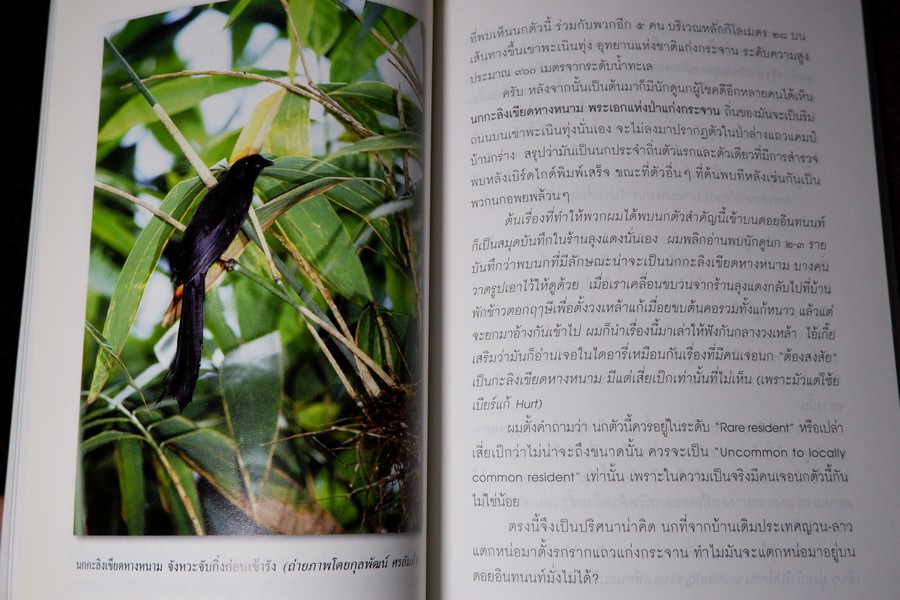 นกกะลิงเขียดหางหนาม จังหวะจับกิ่งก่อนเข้ารัง (ถ่ายภาพโดยกุลพัฒน์ ศรลัมภ์)
ที่พบเห็นนกตัวนี้ ร่วมกับพวกอีก ๕ คน บริเวณหลักกิโลเมตร ๒๘ บน
เส้นทางขึ้นเขาพะเนินทุ่ง อุทยานแห่งชาติแก่งกระจาน ระดับความสูง
ประมาณ ๙๐๐ เมตรจากระดับน้ำทะเล
ครับ หลังจากนั้นเป็นต้นมาก็มีนักดูนกผู้โชคดีอีกหลายคนได้เห็น
นกกะลิงเขียดหางหนาม พระเอกแห่งป่าแก่งกระจาน ถิ่นของมันจะเป็นริม
ถนนบนเขาพะเนินทุ่งนั่นเอง จะไม่ลงมาปรากฏตัวในป่าล่างแถวแคมป์
บ้านกร่าง สรุปว่ามันเป็นนกประจำถิ่นตัวแรกและตัวเดียวที่มีการสำรวจ
พบหลังเบิร์ดไกด์พิมพ์เสร็จ ขณะที่ตัวอื่นๆ ที่ค้นพบทีหลังเช่นกันเป็น
พวกนกอพยพล้วนๆ
ต้นเรื่องที่ทำให้พวกผมได้พบนกตัวสำคัญนี้เข้าบนดอยอินทนนท์
ก็เป็นสมุดบันทึกในร้านลุงแดงนั่นเอง ผมพลิกอ่านพบนักดูนก ๒-๓ ราย
บันทึกว่าพบนกที่มีลักษณะน่าจะเป็นนกกะลิงเขียดหางหนาม บางคน
วาดรูปเอาไว้ให้ดูด้วย เมื่อเราเคลื่อนขบวนจากร้านลุงแดงกลับไปที่บ้าน
พักข้าวตอกฤาษีเพื่อตั้งวงเหล้าแก้เมื่อยขบต้นคอรวมทั้งแก้หนาว แล้วแต่
จะยกมาอ้างกันเข้าไป ผมก็นำเรื่องนี้มาเล่าให้ฟังกันกลางวงเหล้า ไอ้เกี้ย
เสริมว่ามันก็อ่านเจอในไดอารี่เหมือนกันเรื่องที่มีคนเจอนก "ต้องสงสัย"
เป็นกะลิงเขียดหางหนาม มีแต่เสี่ยเป๊กเท่านั้นที่ไม่เห็น (เพราะมัวแต่โซ้ย
เบียร์แก้ Hurt)
ผมตั้งคำถามว่า นกตัวนี้ควรอยู่ในระดับ "Rare resident" หรือเปล่า
เสี่ยเป๊กว่าไม่น่าจะถึงขนาดนั้น ควรจะเป็น "Uncommon to locally
common resident" เท่านั้น เพราะในความเป็นจริงมีคนเจอนกตัวนี้กัน
ไม่ใช่น้อย
ตรงนี้จึงเป็นปริศนาน่าคิด นกที่จากบ้านเดิมประเทศญวน-ลาว
แตกหน่อมาตั้งรกรากแถวแก่งกระจาน ทำไมมันจะแตกหน่อมาอยู่บน
ดอยอินทนนท์มั่งไม่ได้?